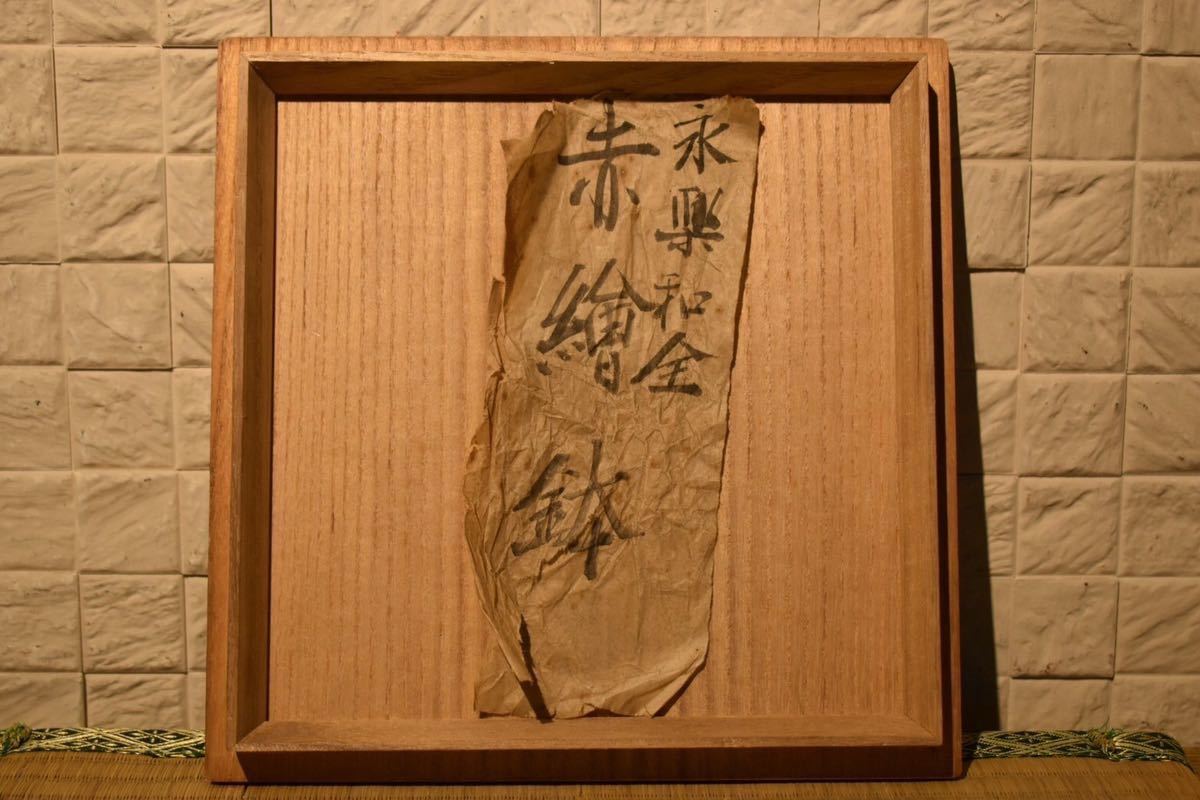 永樂和全
赤繪鉢